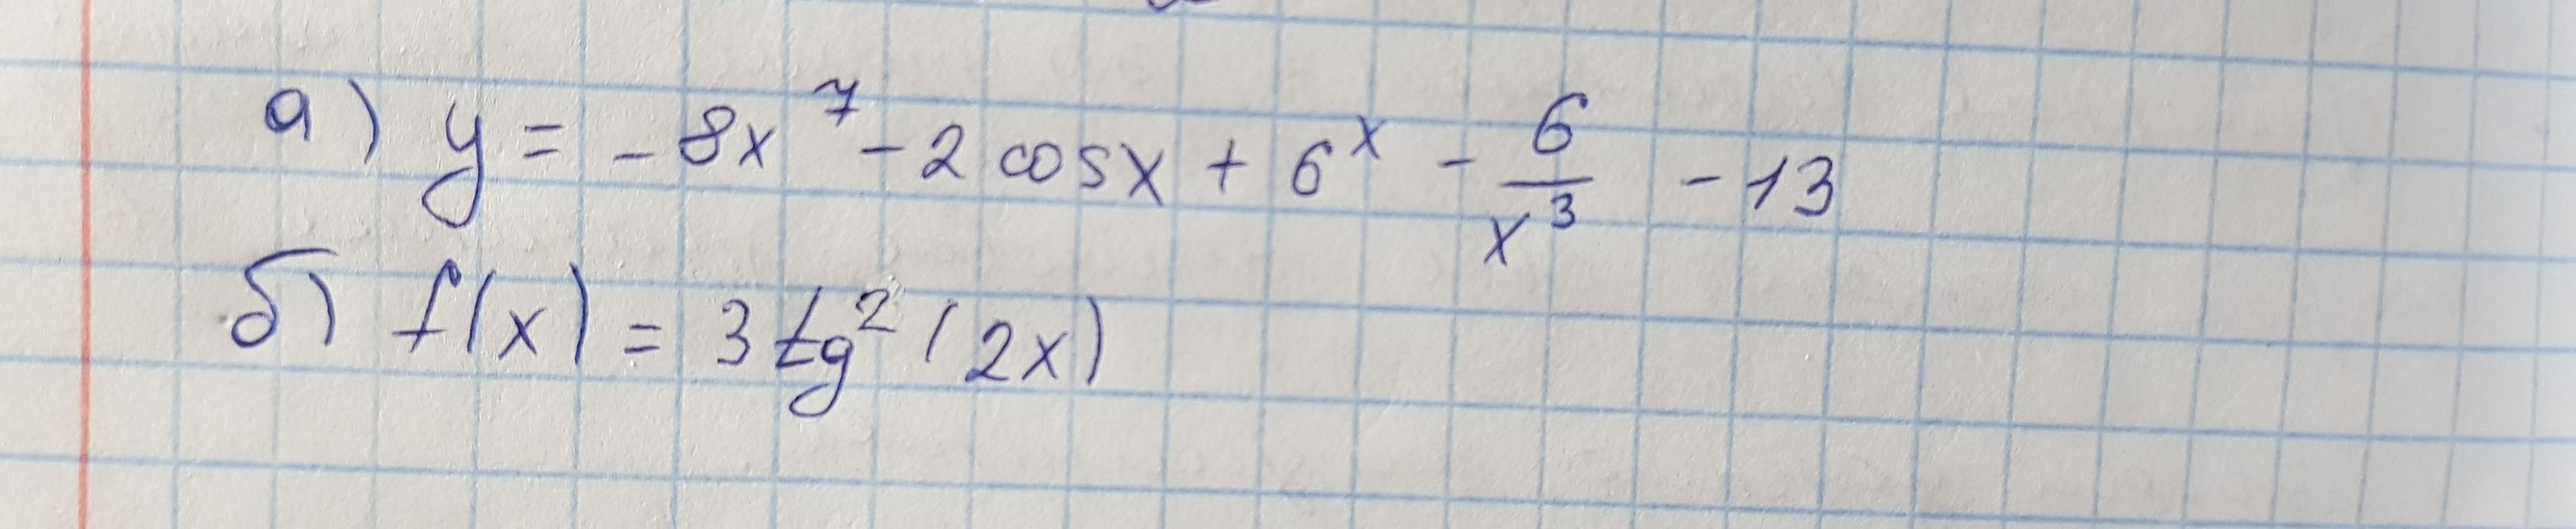 а) y = -8x⁷ - 2 cosx + 6ˣ - 6/x³ - 13
б) f(x) = 3 tg² (2x)